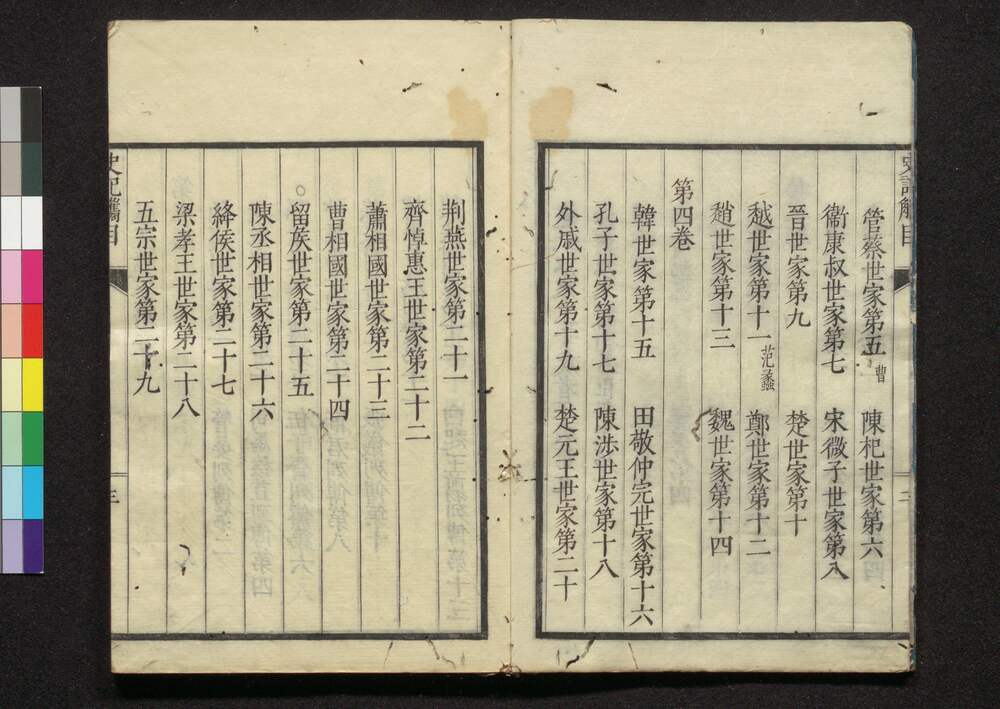 管蔡世家第五 曹 陳杞世家第六
衞康叔世家第七 宋微子世家第八
晉世家第九 楚世家第十
越世家第十一 范蠡 鄭世家第十二
趙世家第十三 魏世家第十四
第四卷
韓世家第十五 田敬仲完世家第十六
孔子世家第十七 陳涉世家第十八
外戚世家第十九 楚元王世家第二十
荆燕世家第二十一
齊悼惠王世家第二十二
蕭相國世家第二十三
曹相國世家第二十四
留侯世家第二十五
陳丞相世家第二十六
絳侯世家第二十七
梁孝王世家第二十八
五宗世家第二十九
史記觿目
三